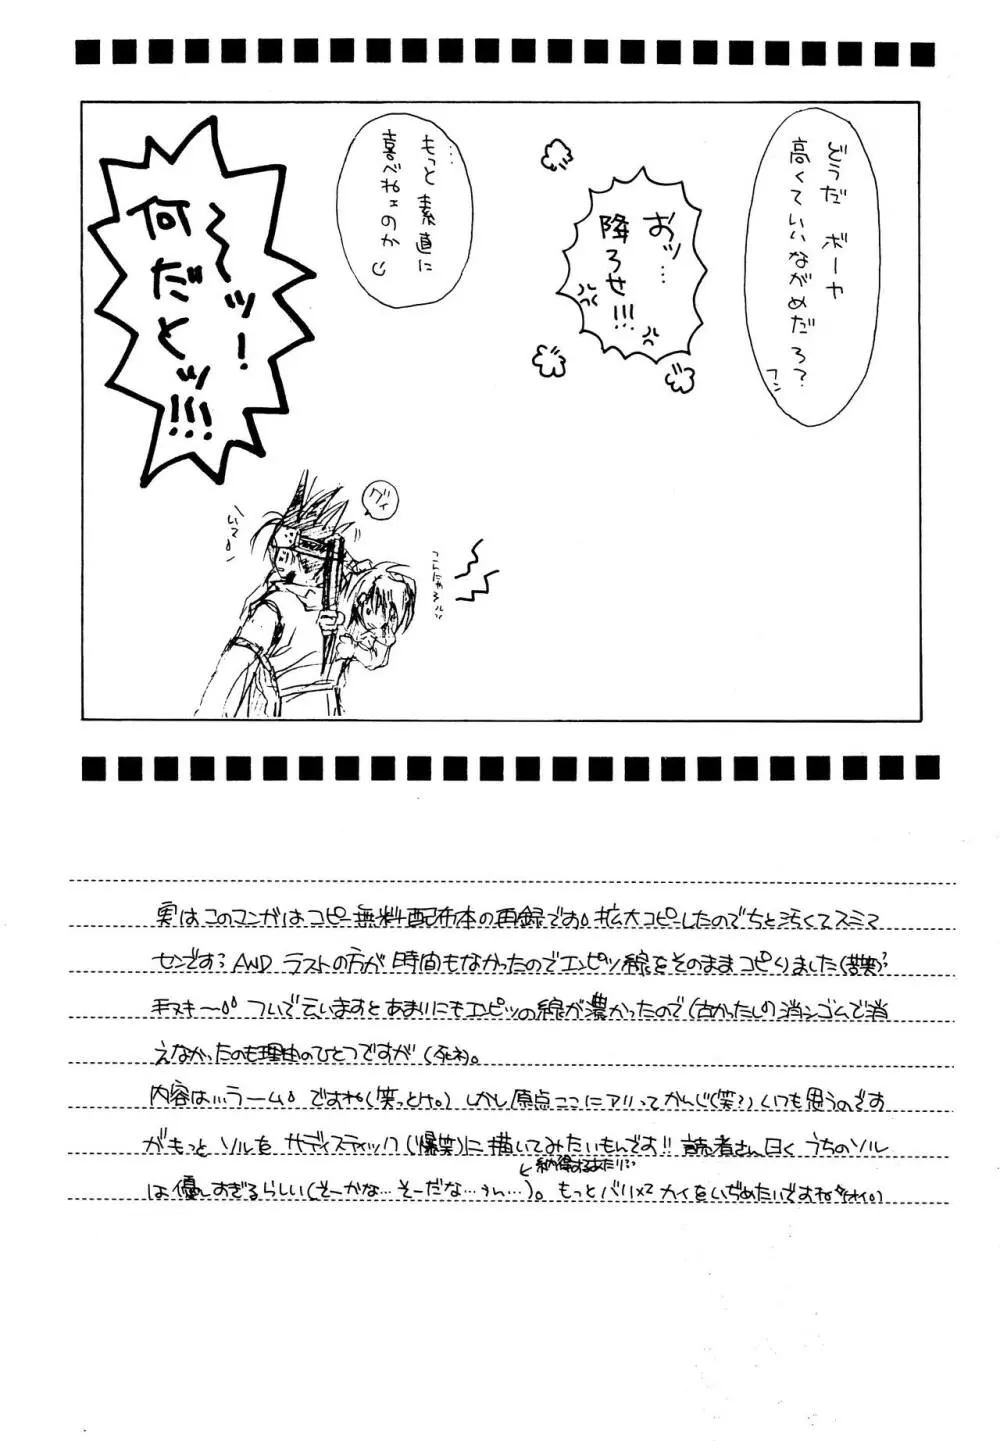 どうだ ボーヤ
高くていいながめだろ?
フン
おッ…
降ろせ!!!
…もっと素直に
喜べねェのか
〜〜ッ!
何だとッ!!!
グイ
いて
こんにゃろ
実はこのマンガはコピー無料配布本の再録です。拡大コピーしたのでちと汚くてスミマ
センです? AND ラストの方が時間もなかったのでエンピツ線をそのままコピりました(苦笑)?
手ヌキ〜 ついで云いますとあまりにもエンピツの線が濃かったので(古かったし)消シゴムで消
えなかったのも理由のひとつですが(死ネ)。
内容は…うーム。ですね(笑っとけ。)しかし原点ここにアリってかんじ(笑?)いつも思うのです
がもっとソルを サディスティック(爆笑)に描いてみたいもんです!! 読者さん曰くうちのソル
納得するあたり…
は優しすぎるらしい(そーかな…そーだな…うん…)。もっとバリバリカイをいぢめたいですね